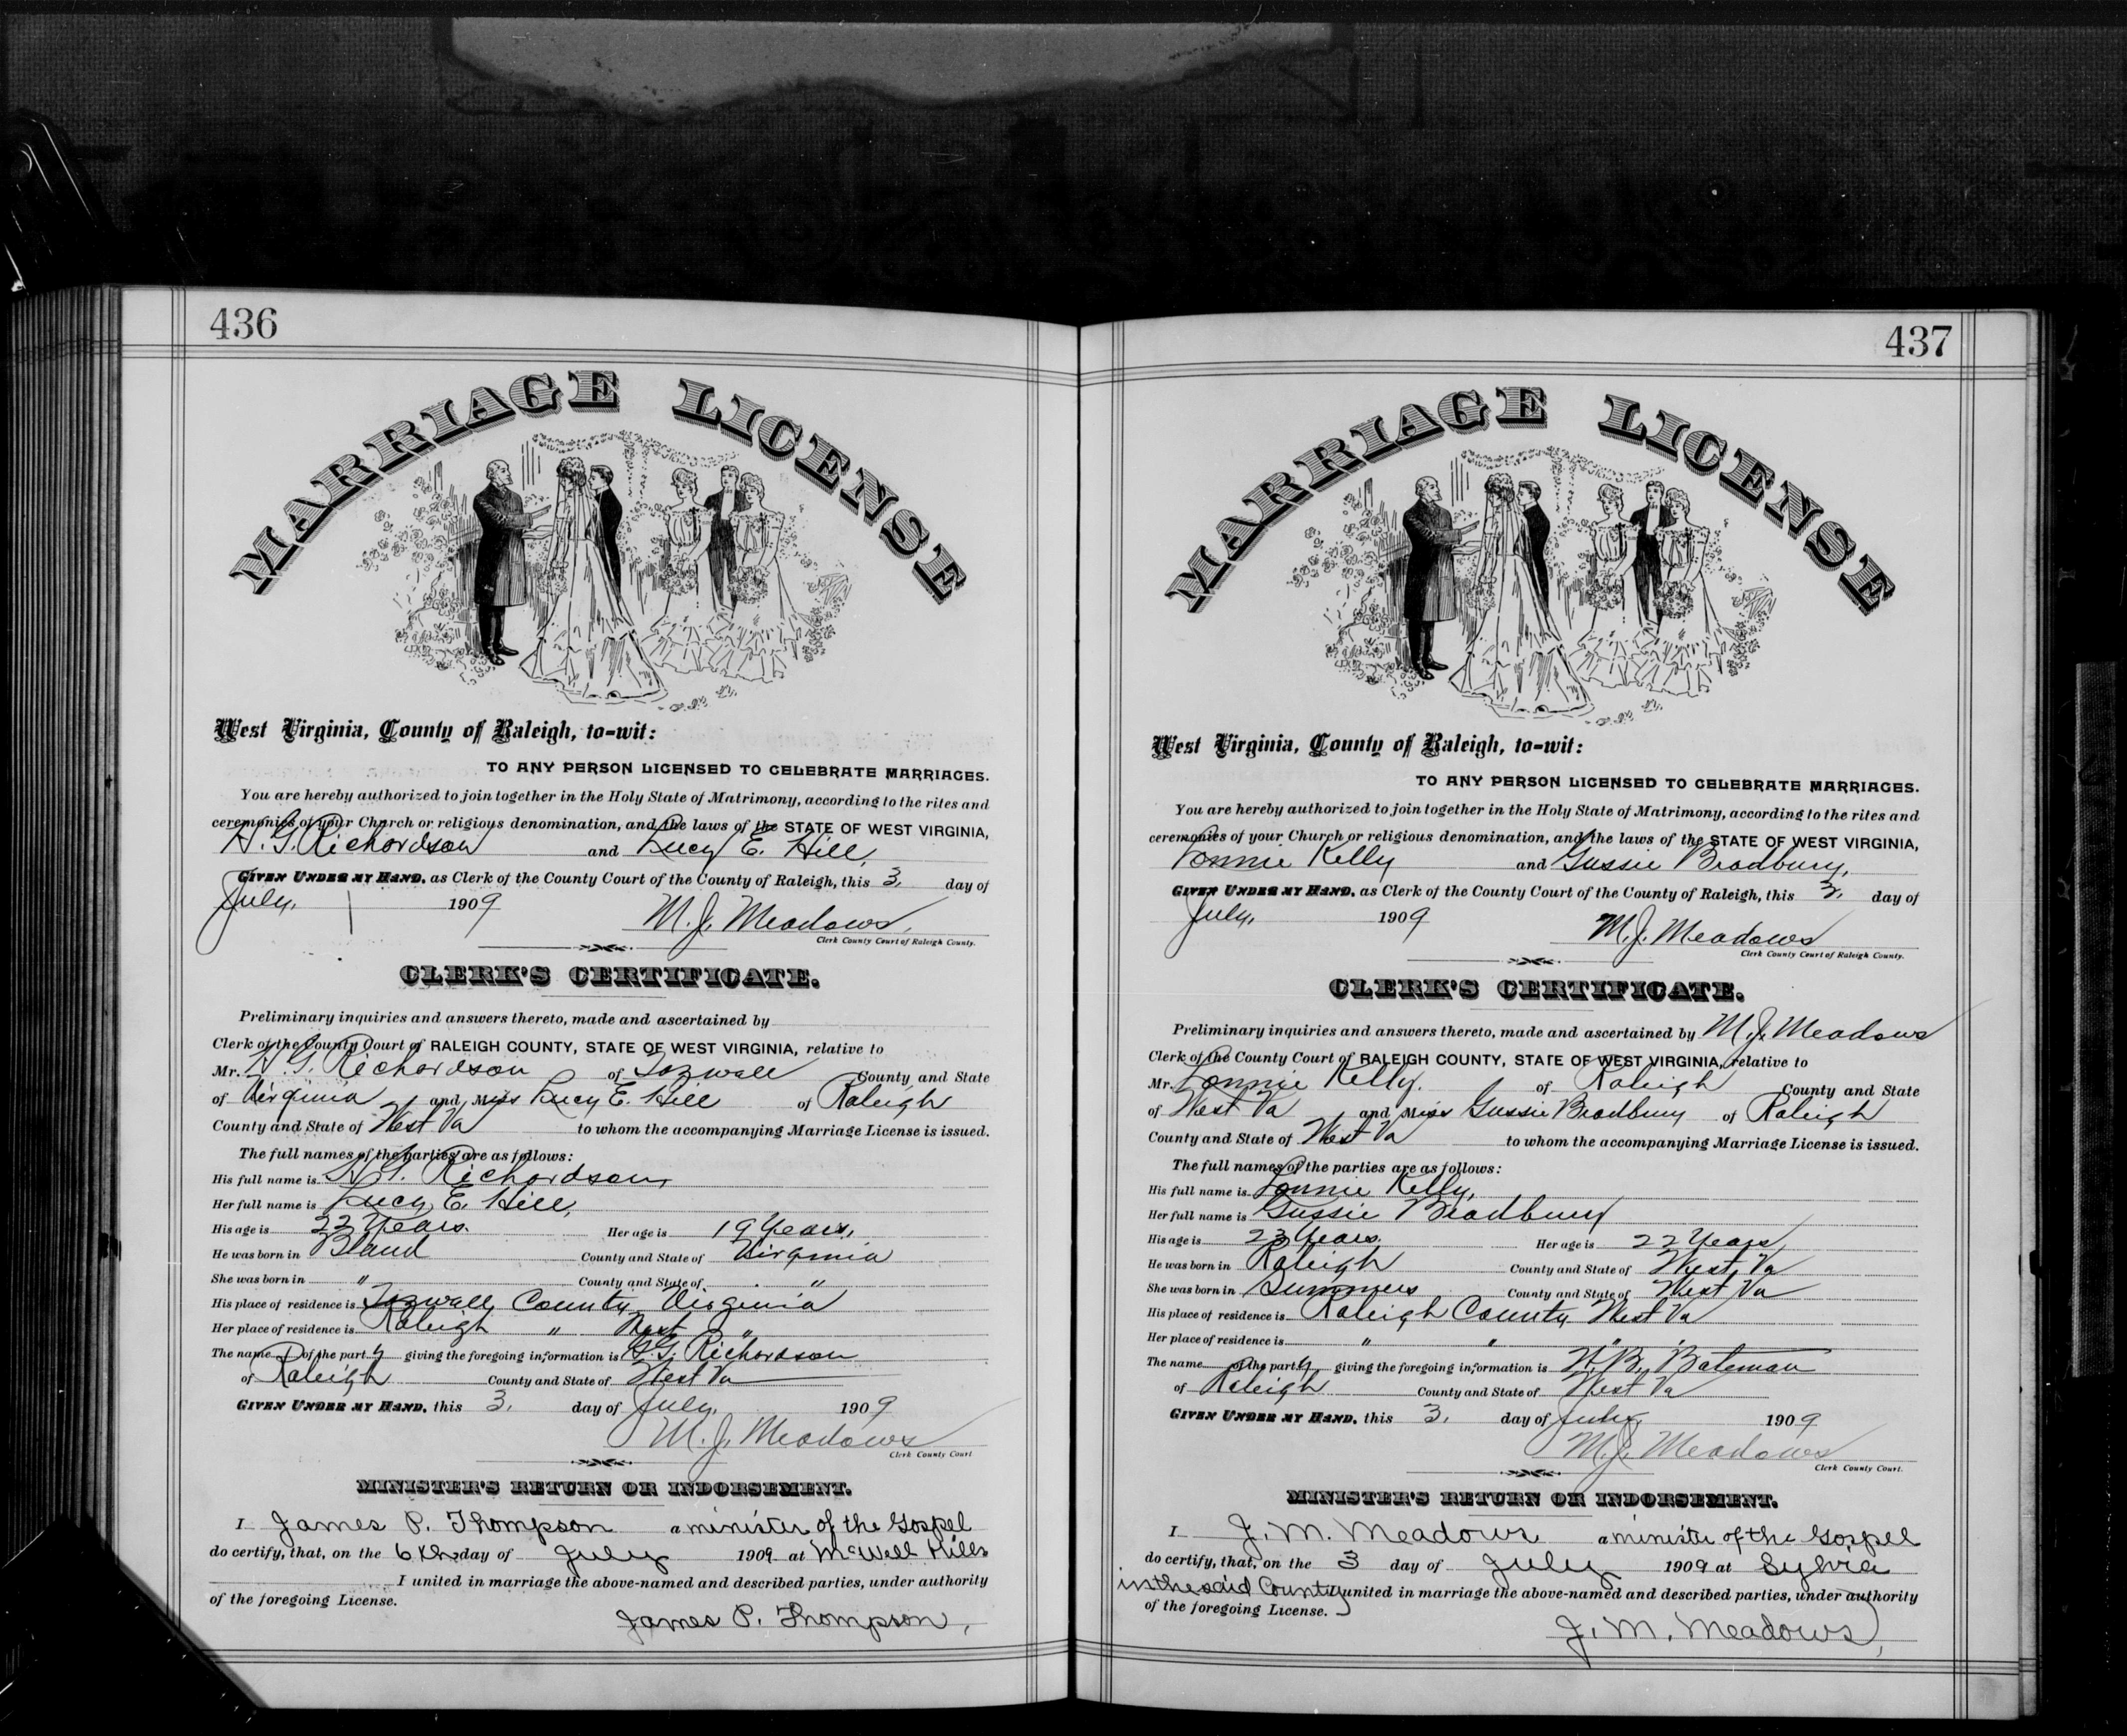 436
MARRIAGE LICENSE
West Virginia, County of Raleigh, to-wit:
TO ANY PERSON LICENSED TO CELEBRATE MARRIAGES.
You are hereby authorized to join together in the Holy State of Matrimony, according to the rites and
ceremonies of your Church or religious denomination, and the laws of the STATE OF WEST VIRGINIA,
H. G. Richardson and Lucy E. Hill,
GIVEN UNDER MY HAND, as Clerk of the County Court of the County of Raleigh, this 3, day of
July, 1909
M. J. Meadows,
Clerk County Court of Raleigh County.
CLERK'S CERTIFICATE.
Preliminary inquiries and answers thereto, made and ascertained by
Clerk of the County Court of RALEIGH COUNTY, STATE OF WEST VIRGINIA, relative to
Mr. H. G. Richardson of Tazwell County and State
of Virginia and Miss Lucy E. Hill of Raleigh
County and State of West Va to whom the accompanying Marriage License is issued.
The full names of the parties are as follows:
His full name is H. G. Richardson,
Her full name is Lucy E. Hill,
His age is 22 Years. Her age is 19 Years,
He was born in Bland County and State of Virginia
She was born in " County and State of "
His place of residence is Tazwell County Virginia
Her place of residence is Raleigh " West "
The name of the party giving the foregoing information is G. Richardson
of Raleigh County and State of West Va
GIVEN UNDER MY HAND, this 3, day of July, 1909
M. J. Meadows
Clerk County Court
MINISTER'S RETURN OR INDORSEMENT.
I James P. Thompson a minister of the Gospel
do certify, that, on the 6th day of July 1909 at McWell Hills
I united in marriage the above-named and described parties, under authority
of the foregoing License.
James P. Thompson,
437
MARRIAGE LICENSE
West Virginia, County of Raleigh, to-wit:
TO ANY PERSON LICENSED TO CELEBRATE MARRIAGES.
You are hereby authorized to join together in the Holy State of Matrimony, according to the rites and
ceremonies of your Church or religious denomination, and the laws of the STATE OF WEST VIRGINIA,
Lonnie Kelly and Gussie Bradbury,
GIVEN UNDER MY HAND, as Clerk of the County Court of the County of Raleigh, this 3, day of
July, 1909
M. J. Meadows
Clerk County Court of Raleigh County.
CLERK'S CERTIFICATE.
Preliminary inquiries and answers thereto, made and ascertained by M. J. Meadows
Clerk of the County Court of RALEIGH COUNTY, STATE OF WEST VIRGINIA, relative to
Mr. Lonnie Kelly. of Raleigh County and State
of West Va and Miss Gussie Bradbury of Raleigh
County and State of West Va to whom the accompanying Marriage License is issued.
The full names of the parties are as follows:
His full name is Lonnie Kelly,
Her full name is Gussie Bradbury
His age is 23 Years. Her age is 22 Years,
He was born in Raleigh County and State of West Va
She was born in Summers County and State of West Va
His place of residence is Raleigh County, West Va
Her place of residence is " " " "
The name of the party giving the foregoing information is W. B. Bateman
of Raleigh County and State of West Va
GIVEN UNDER MY HAND, this 3, day of July, 1909
M. J. Meadows
Clerk County Court.
MINISTER'S RETURN OR INDORSEMENT.
I J. M. Meadows a minister of the Gospel
do certify, that, on the 3 day of July 1909 at Sylvia
in the said County I united in marriage the above-named and described parties, under authority
of the foregoing License.
J. M. Meadows,